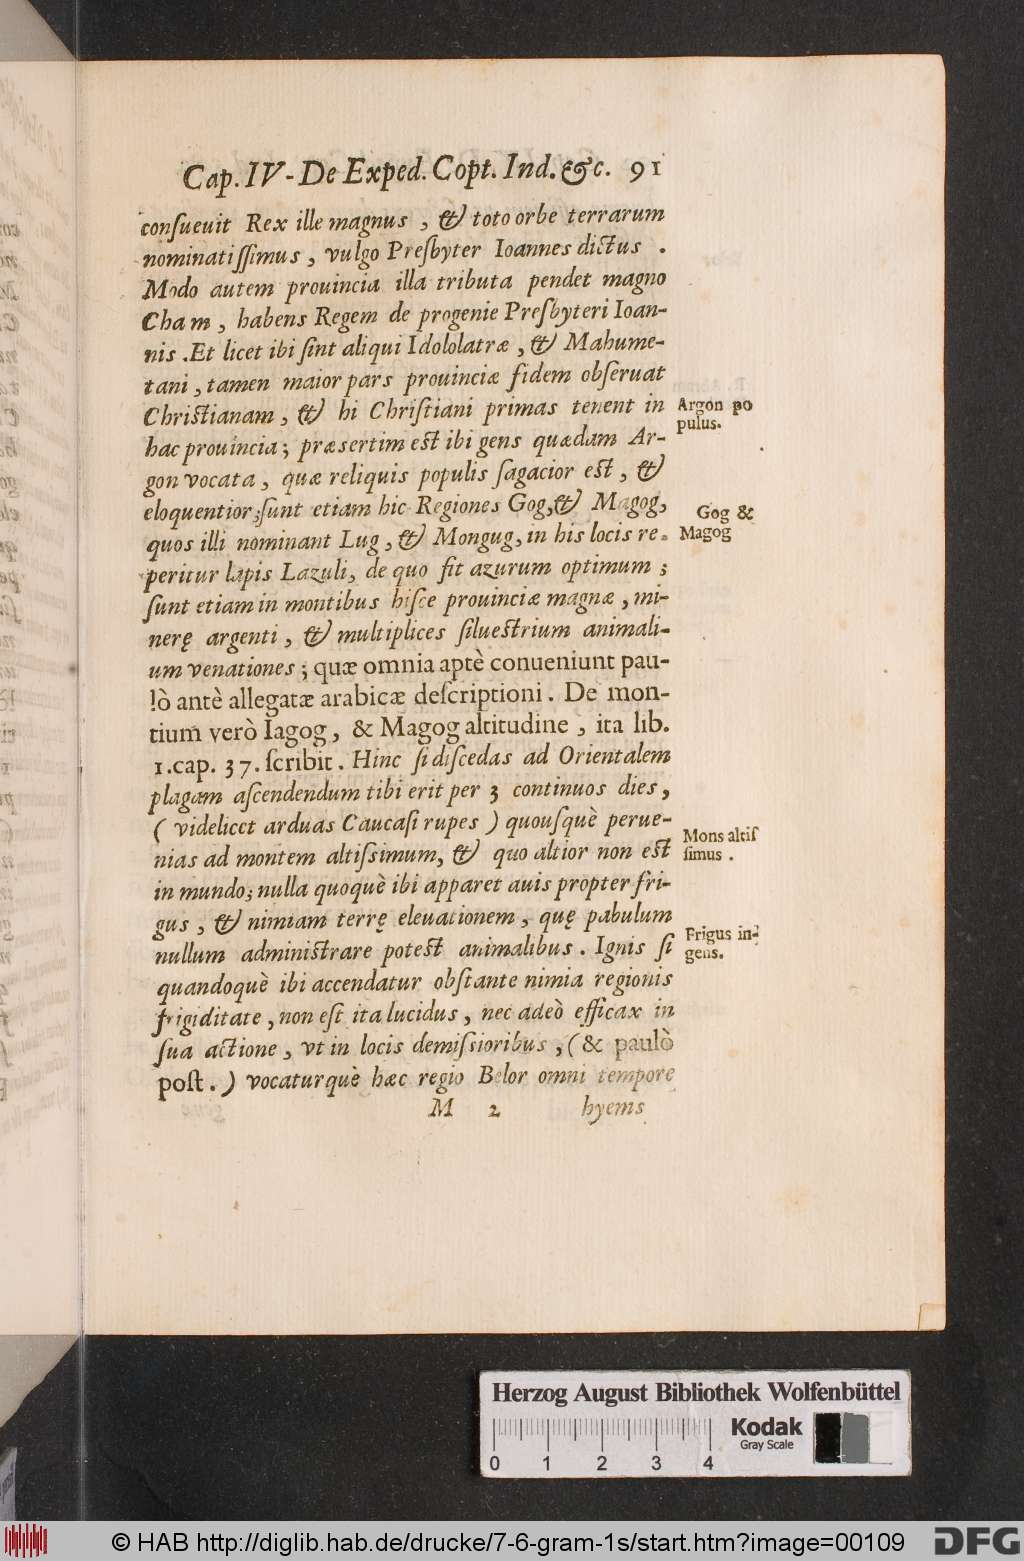 Cap. IV - De Exped. Copt. Ind. &c. 91
conſueuit Rex ille magnus, & toto orbe terrarum
nominatiſſimus, vulgo Preſbyter Ioannes dictus.
Modo autem prouincia illa tributa pendet magno
Cham, habens Regem de progenie Preſbyteri Ioan-
nis. Et licet ibi ſint aliqui Idololatræ, & Mahume-
tani, tamen maior pars prouinciæ fidem obſeruat
Chriſtianam, & hi Chriſtiani primas tenent in
hac prouincia; præsertim eſt ibi gens quædam Ar-
gon vocata, quæ reliquis populis ſagacior eſt, &
eloquentior; ſunt etiam hic Regiones Gog, & Magog,
quos illi nominant Lug, & Mongug, in his locis re-
peritur lapis Lazuli, de quo fit azurum optimum;
ſunt etiam in montibus hiſce prouinciæ magnæ, mi-
nerę argenti, & multiplices ſilueſtrium animali-
um venationes; quæ omnia aptè conueniunt pau-
lò antè allegatæ arabicæ deſcriptioni. De mon-
tium verò Iagog, & Magog altitudine, ita lib.
1. cap. 37. ſcribit. Hinc ſi diſcedas ad Orientalem
plagam aſcendendum tibi erit per 3 continuos dies,
(videlicet arduas Caucaſi rupes) quouſquè perue-
nias ad montem altiſsimum, & quo altior non eſt
in mundo; nulla quoquè ibi apparet auis propter fri-
gus, & nimiam terrę eleuationem, quę pabulum
nullum adminiſtrare poteſt animalibus. Ignis ſi
quandoquè ibi accendatur obſtante nimia regionis
frigiditate, non eſt ita lucidus, nec adeò efficax in
ſua actione, vt in locis demiſsioribus, (& paulò
poſt.) vocaturquè hæc regio Belor omni tempore
M 2 hyems
Argon po
pulus.
Gog &
Magog
Mons altiſ
ſimus.
Frigus in-
gens.
Herzog August Bibliothek Wolfenbüttel
Kodak
Gray Scale
0 1 2 3 4
© HAB http://diglib.hab.de/drucke/7-6-gram-1s/start.htm?image=00109
DFG